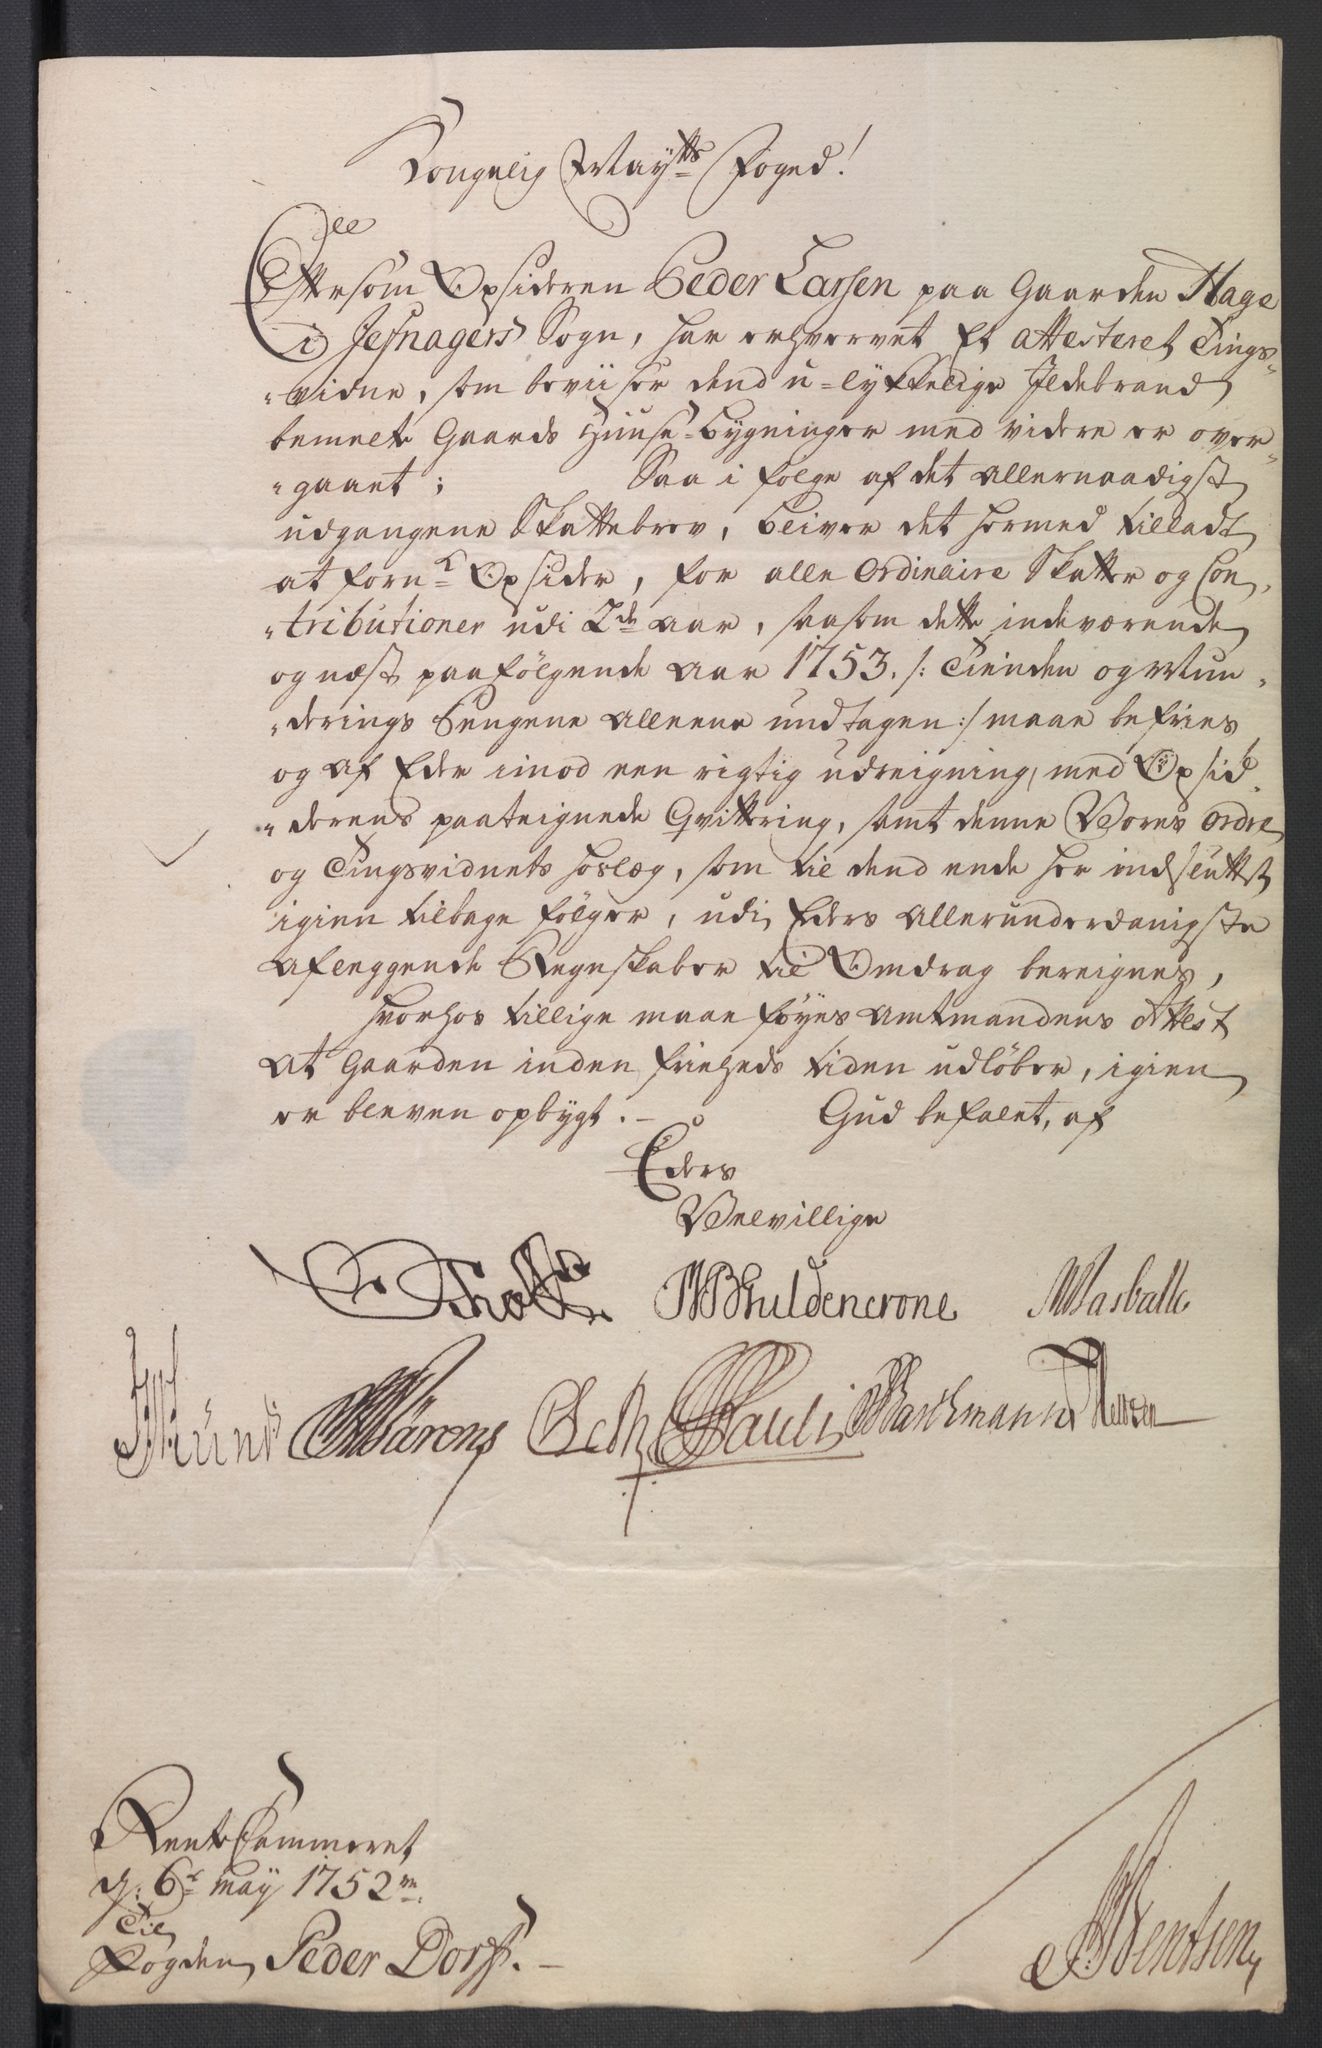 Kongelig Mayts Foged!
Eftersom Opsideren Peder Larsen paa Gaarden Hage
i Jefnagers Sogn, har erhvervet Et attesteret Tings-
-vidne, som beviiser dend u-lykkelige Ildebrand
bemelte Gaards Huuse-bygninger med videre er over-
-gaaet; Saa i følge af det allernaadigst
udgangene Skattebrev, bliver det hermed tilladt
at fornte Opsider, for alle Ordinaire Skatter og Con-
-tributioner udi 2de aar, saasom dette indeværende
og næst paafølgende aar 1753. /: Tienden og Mun-
-derings Pengene alleene undtagen :/ maae befries
og af Eder imod een rigtig udreigning, med Opsid-
-derens paateignede Qvittering, samt denne Vores Ordre
og Tingsvidnets hoslæg, som til dend ende her indsluttet
igien tilbage følger, udi Eders allerunderdanigste
aflæggende Regnskaber til Omdrag bereignes,
hvorhos tillige maae føyes amtmandens Attest
at Gaarden inden friheds tiden udløber, igien
er bleven opbygt. – Gud befalet, af
Eders
Velvillige
Tho JWBhuldencrone Masballe
Wärens Seth Pauli Barthmann
RenteCammeret
d: 6te may 1752
Til
Fogden Peder Dorf. –
Wentsen